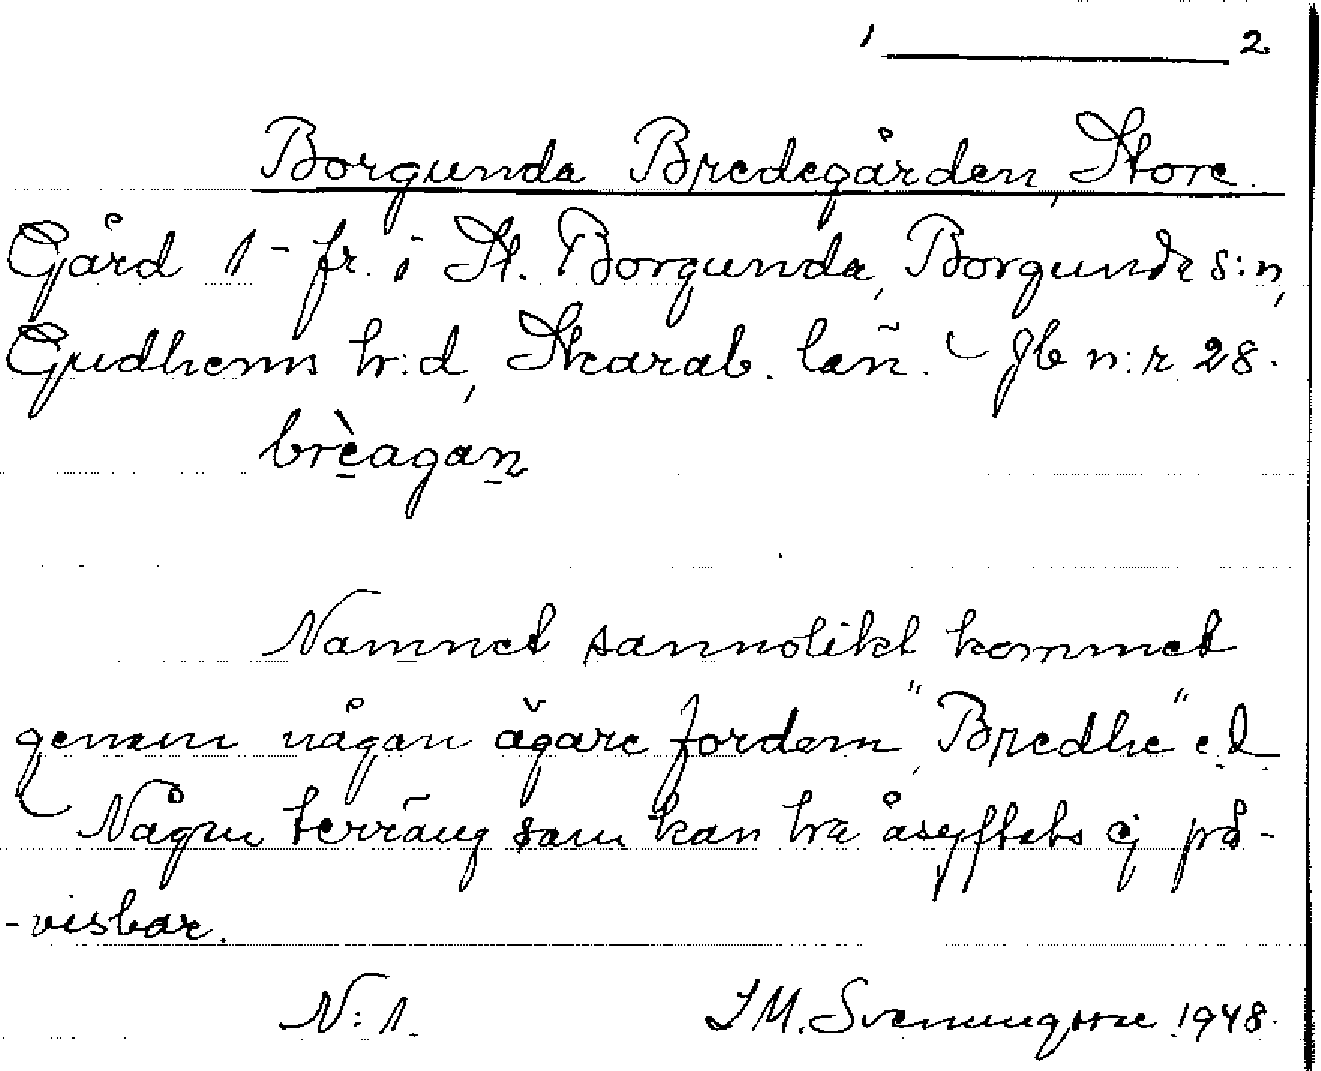 1 ________ 2
Borgunda Bredegården, Store.
Gård 1- fr. i St. Borgunda, Borgunda s:n,
Gudhems hr:d, Skarab. län. Jb n:r 28.
brèagan
Namnet sannolikt kommet
genom någon ägare fordom "Bredhe" e.d.
Någon terräng som kan ha åsyftats ej på-
-visbar.
N: 1. I M. Svenungsson 1948.